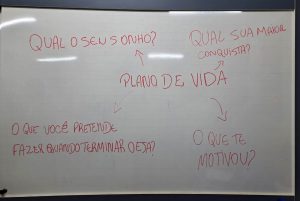 QUAL O SEU SONHO?
QUAL SUA MAIOR
CONQUISTA?
PLANO DE VIDA
O QUE VOCÊ PRETENDE
FAZER QUANDO TERMINAR O EJA?
O QUE TE
MOTIVOU?